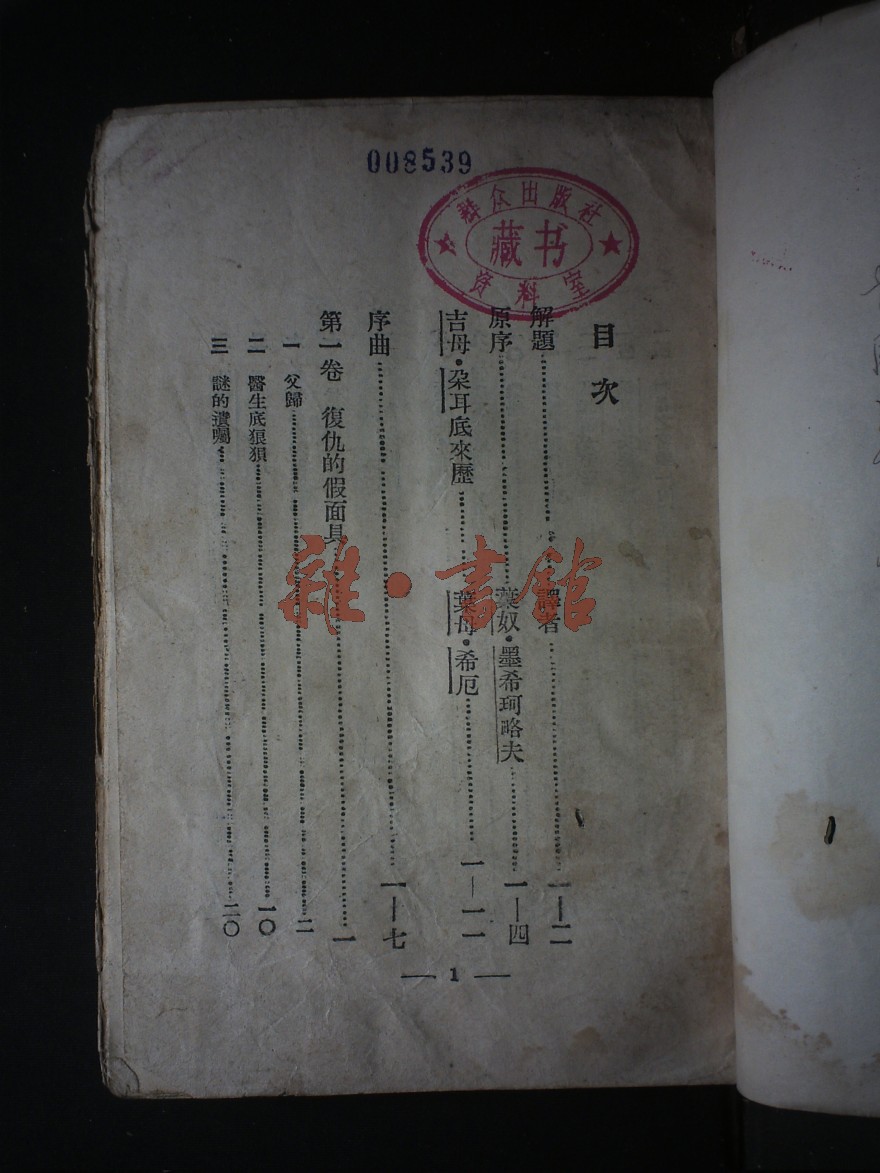 008539
群众出版社
藏书
资料室
目次
解題 譯者 一—二
原序 葉奴·墨希珂略夫 一—四
吉母·朶耳底來歷 葉母·希厄 一—一一
序曲 一—七
第一卷 復仇的假面具 一
一 父歸 二
二 醫生底狼狽 一〇
三 謎的遺囑 二〇
— 1 —
雜·書館